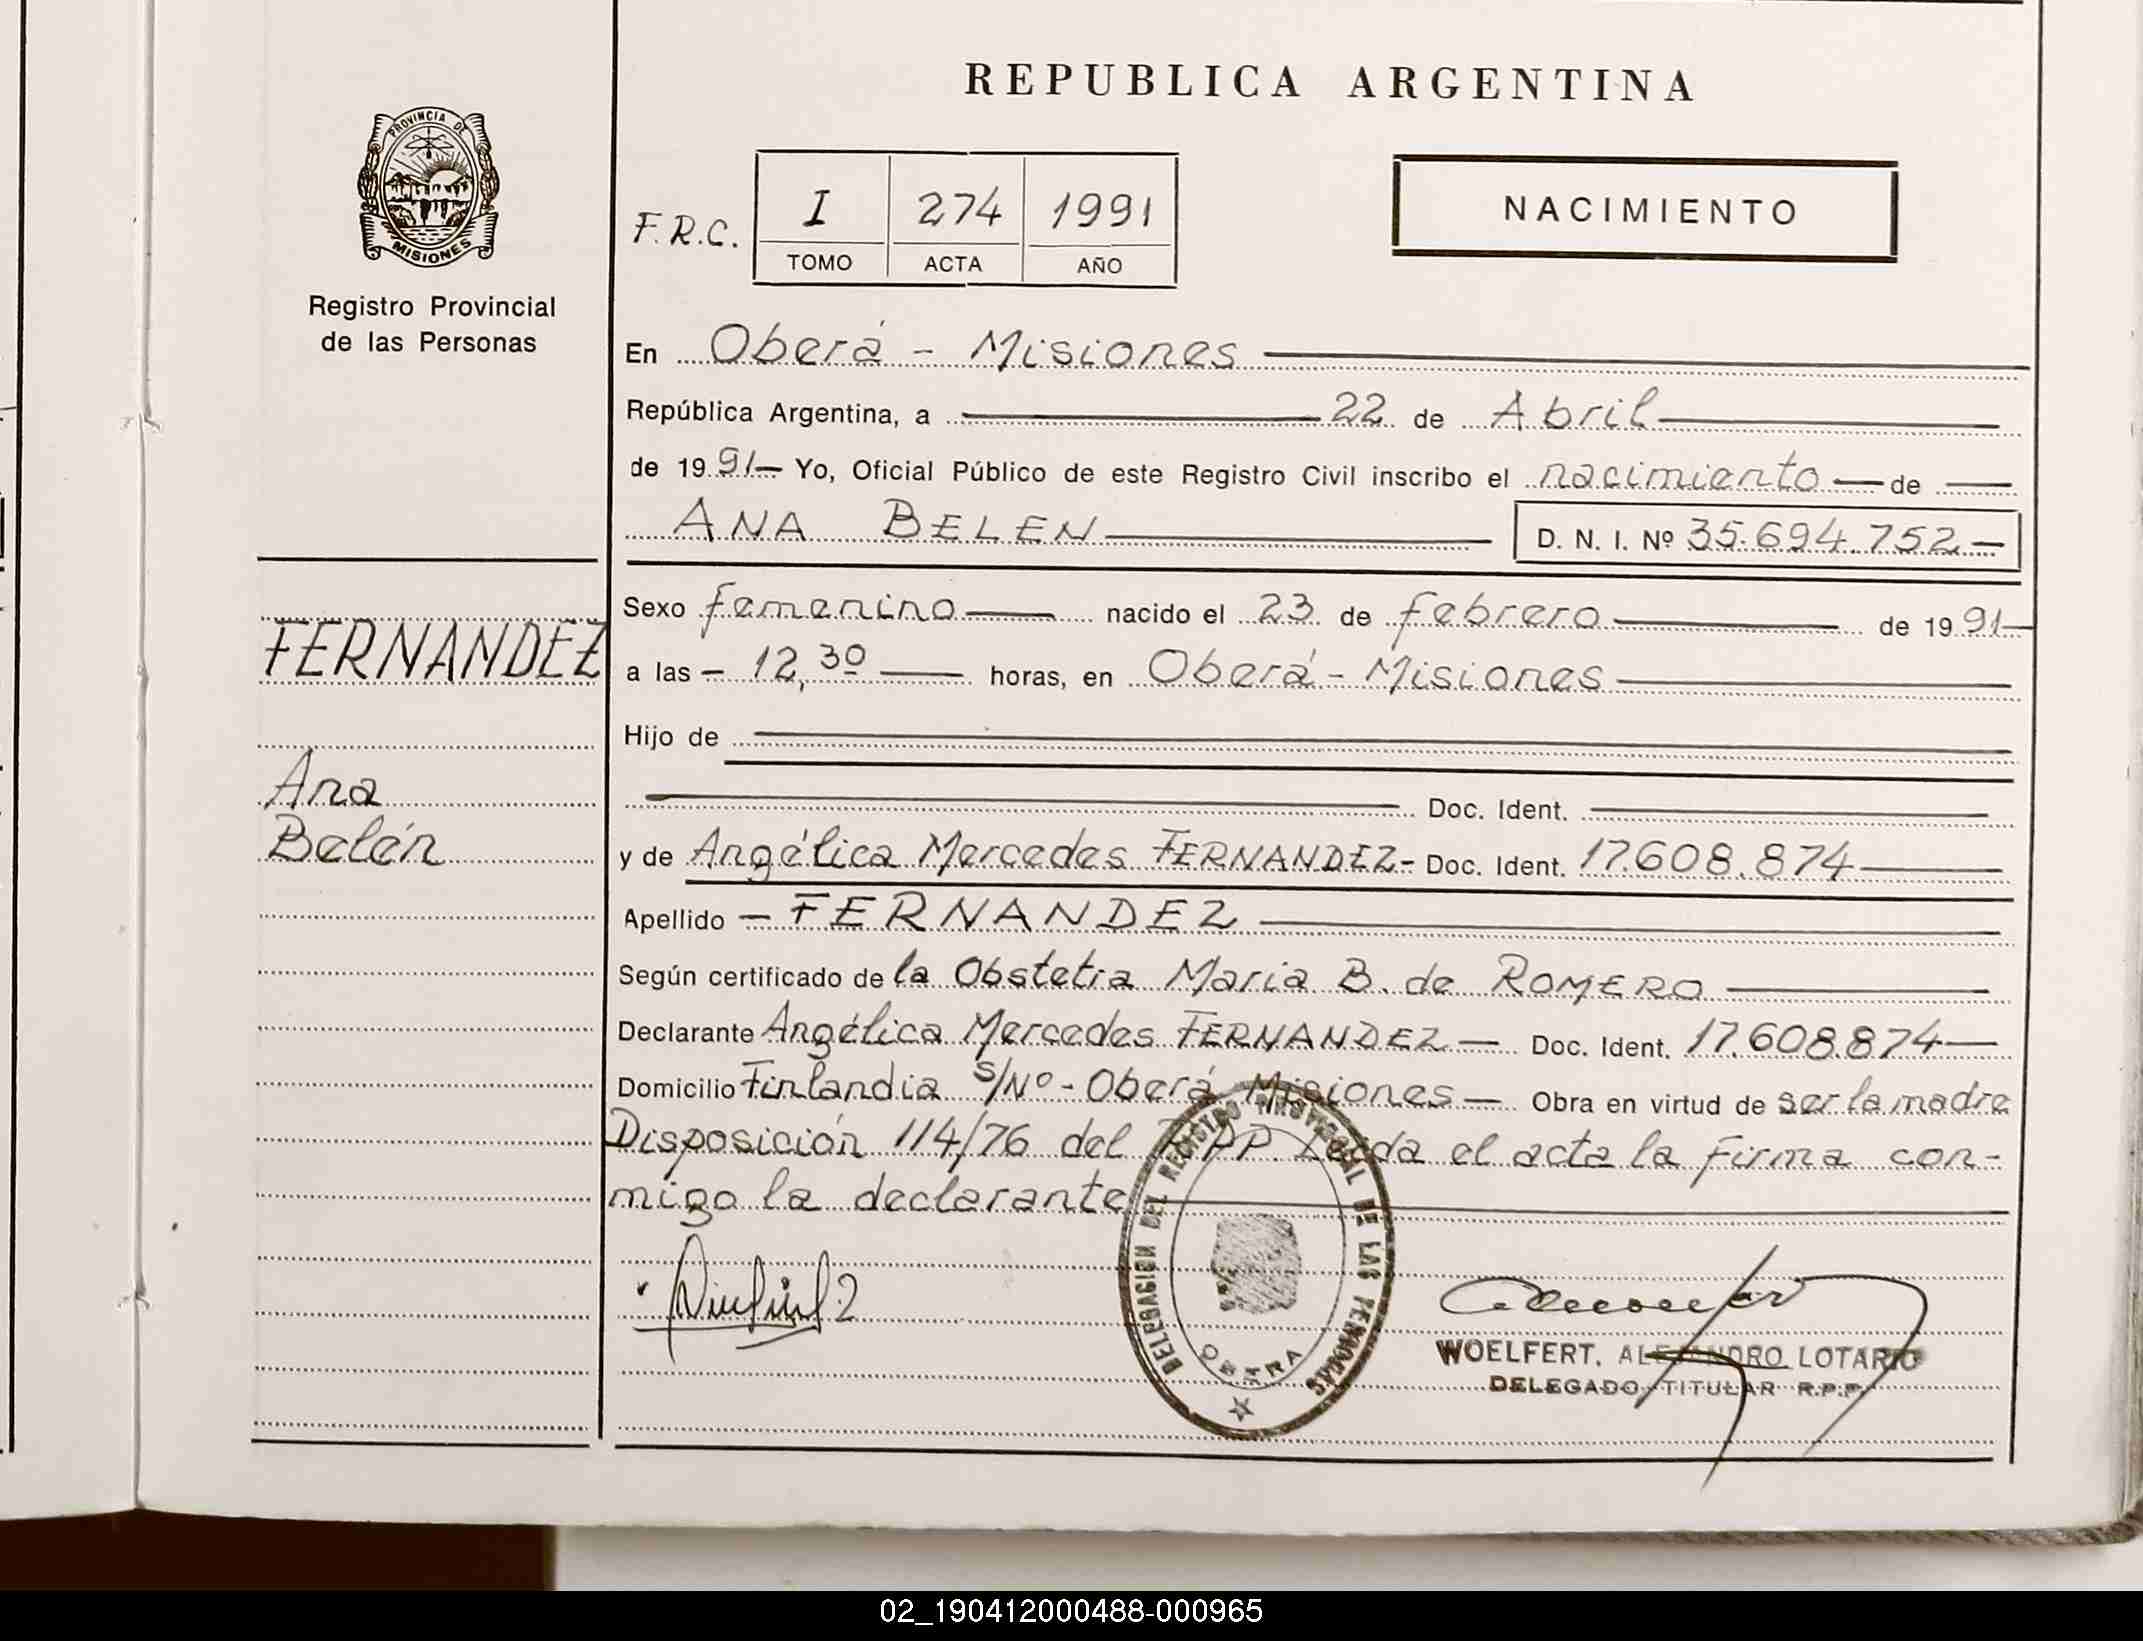 REPUBLICA ARGENTINA
PROVINCIA DE
MISIONES
Registro Provincial
de las Personas
F.R.C.
I 274 1991
TOMO ACTA AÑO
NACIMIENTO
En Oberá - Misiones
República Argentina, a 22 de Abril
de 1991 Yo, Oficial Público de este Registro Civil inscribo el nacimiento de
ANA BELEN D. N. I. Nº 35.694.752
FERNANDEZ
Ana
Belén
Sexo femenino nacido el 23 de febrero de 1991
a las 12,30 horas, en Oberá - Misiones
Hijo de
Doc. Ident.
y de Angélica Mercedes FERNANDEZ- Doc. Ident. 17.608.874
Apellido FERNANDEZ
Según certificado de la Obstetra Maria B. de ROMERO
Declarante Angélica Mercedes FERNANDEZ Doc. Ident. 17.608.874
Domicilio Finlandia s/Nº - Oberá Misiones Obra en virtud de ser la madre
Disposición 114/76 del RPP. Leída el acta la firma con-
migo la declarante
DELEGACION DEL REGISTRO PROVINCIAL DE LAS PERSONAS
OBERA
WOELFERT, ALEJANDRO LOTARIO
DELEGADO TITULAR R.P.P.
02_190412000488-000965